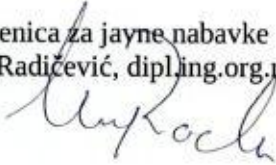 enica za jayne nabavke
Radičević, dipl.ing.org.